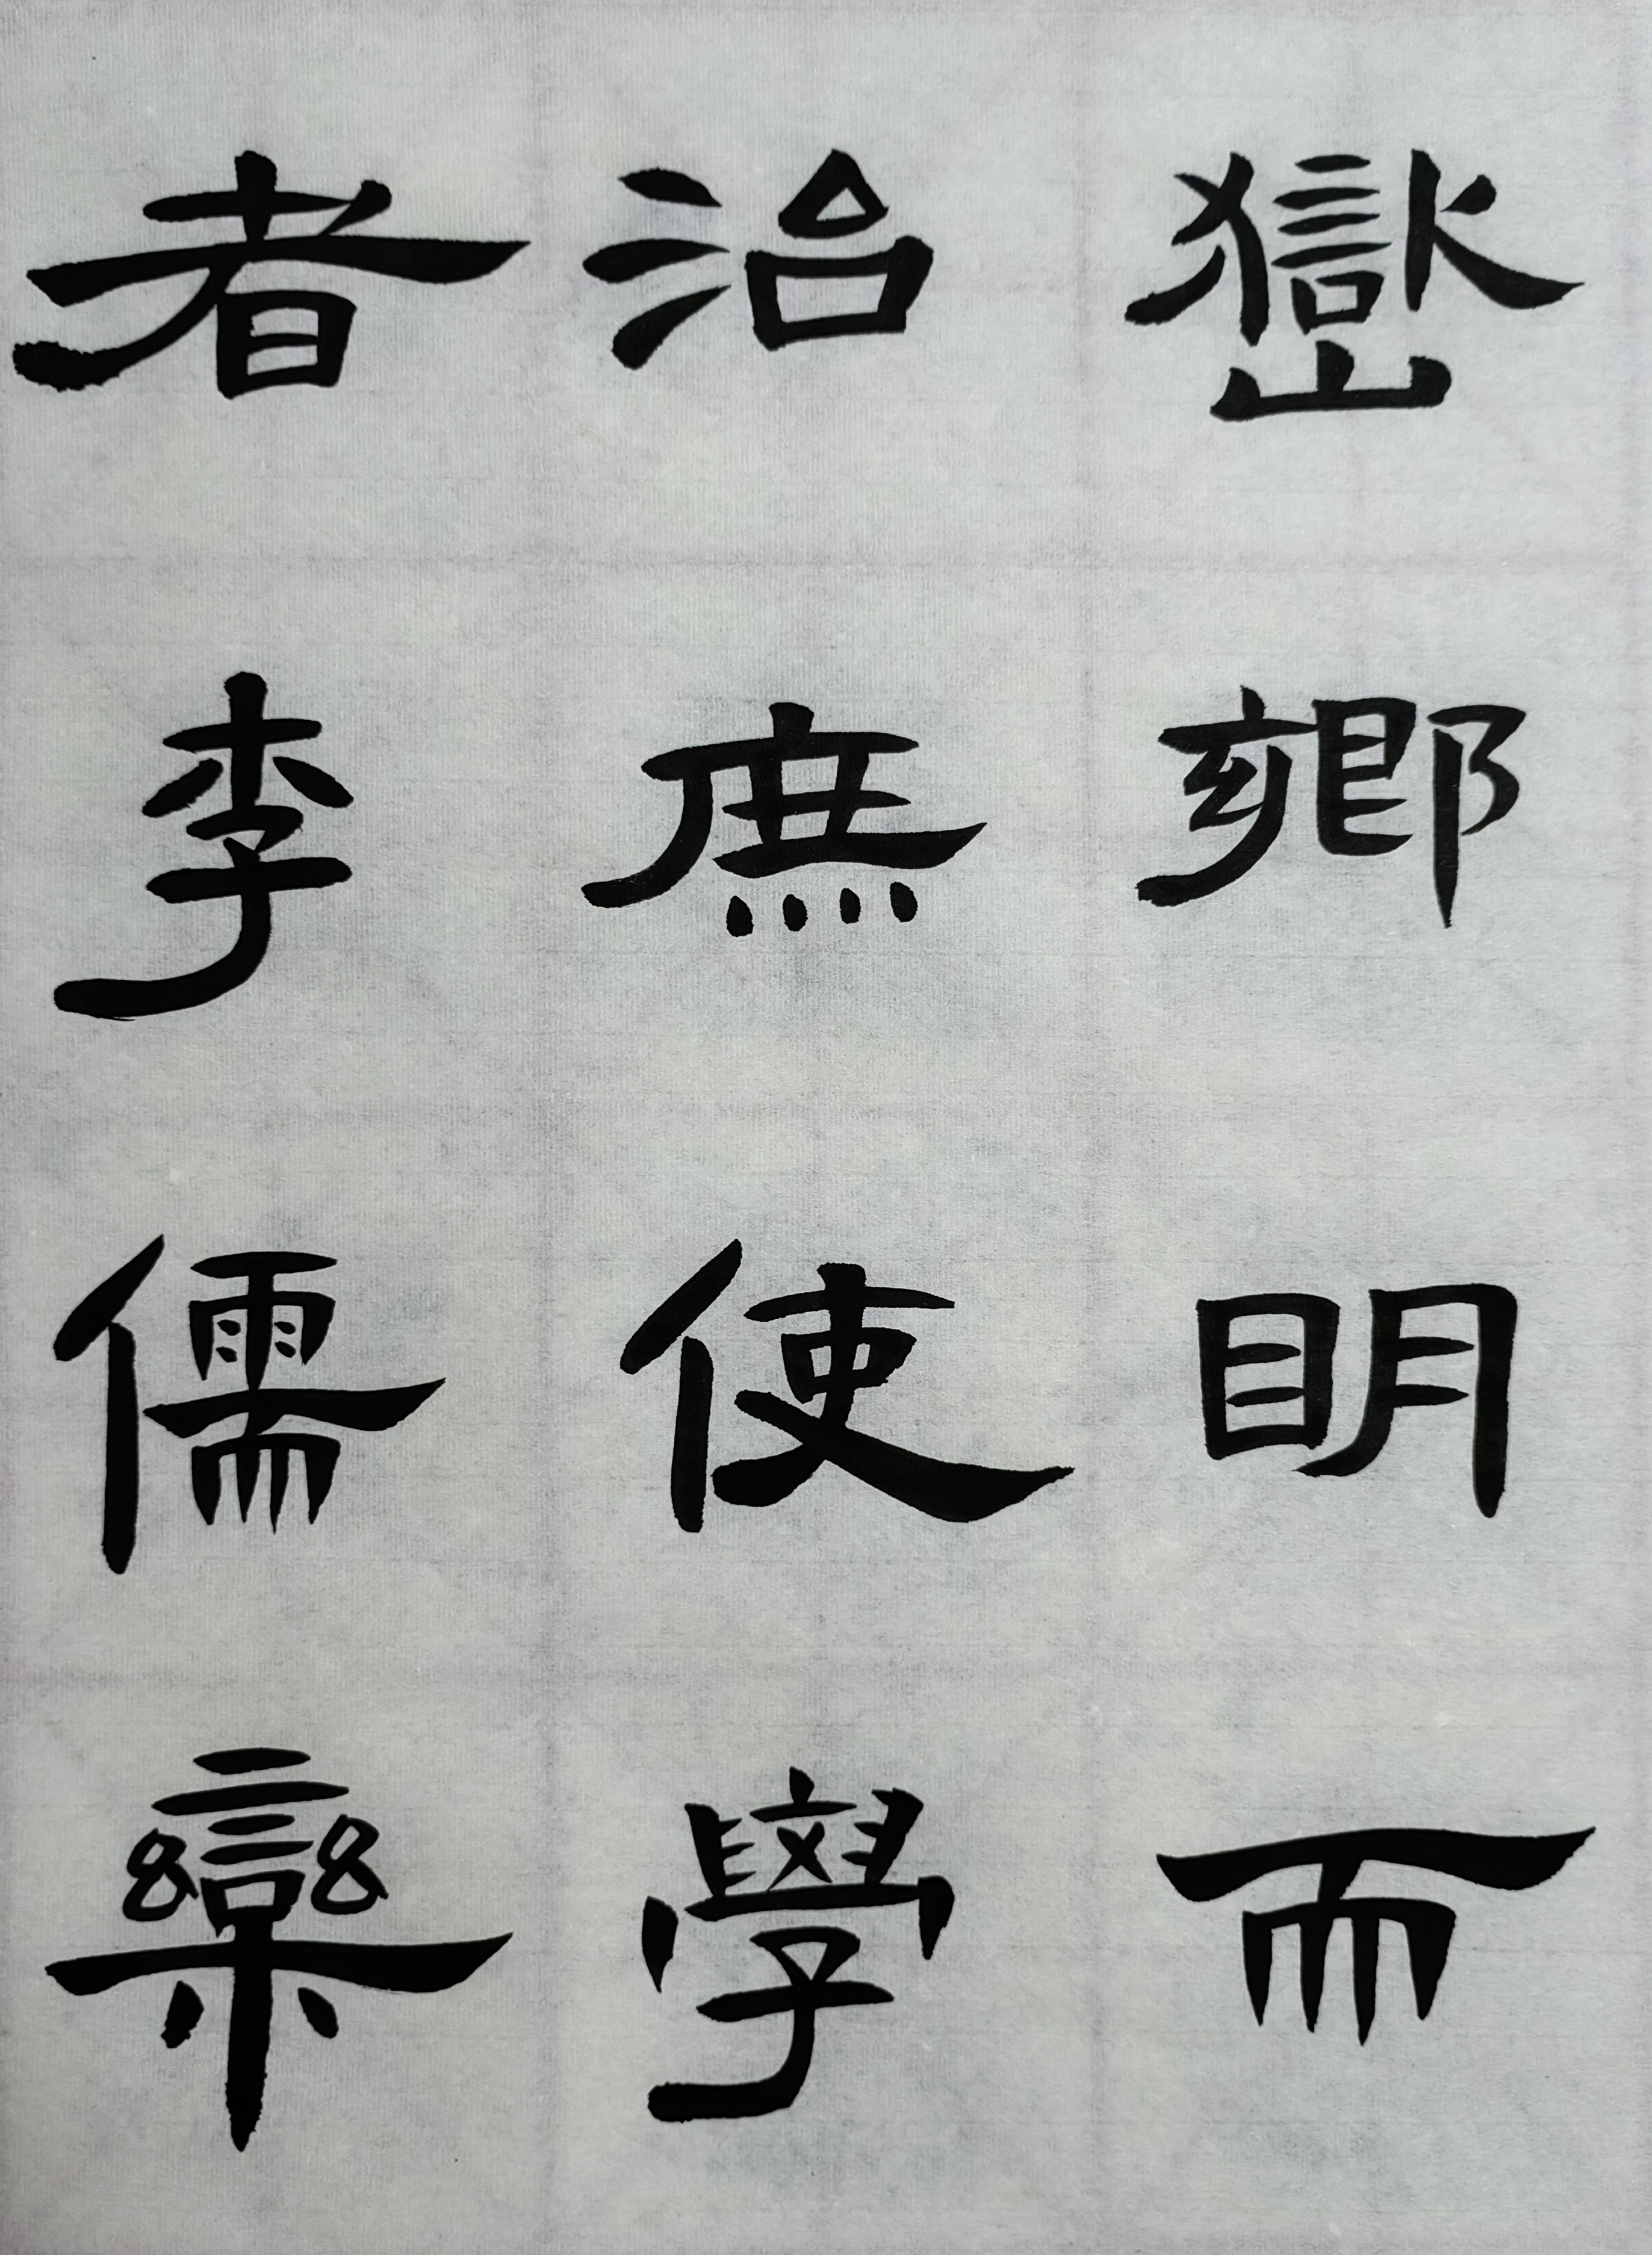 嶽鄉明而
治庶使學
者李儒欒